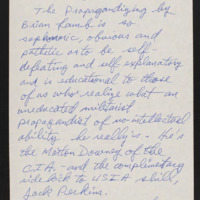 The Propagandizing by
Brian Lamb is so
sophomoric, obvious and
pathetic as to be self-
defeating and self explanatory
and is educational to those
of us who realize what an
uneducated militarist
propagandist of no intellectual
ability he really is. He's
the Morton Downey of the
C.I.A. and the complimentary
side kick to USIA shill,
Jack Perkins.